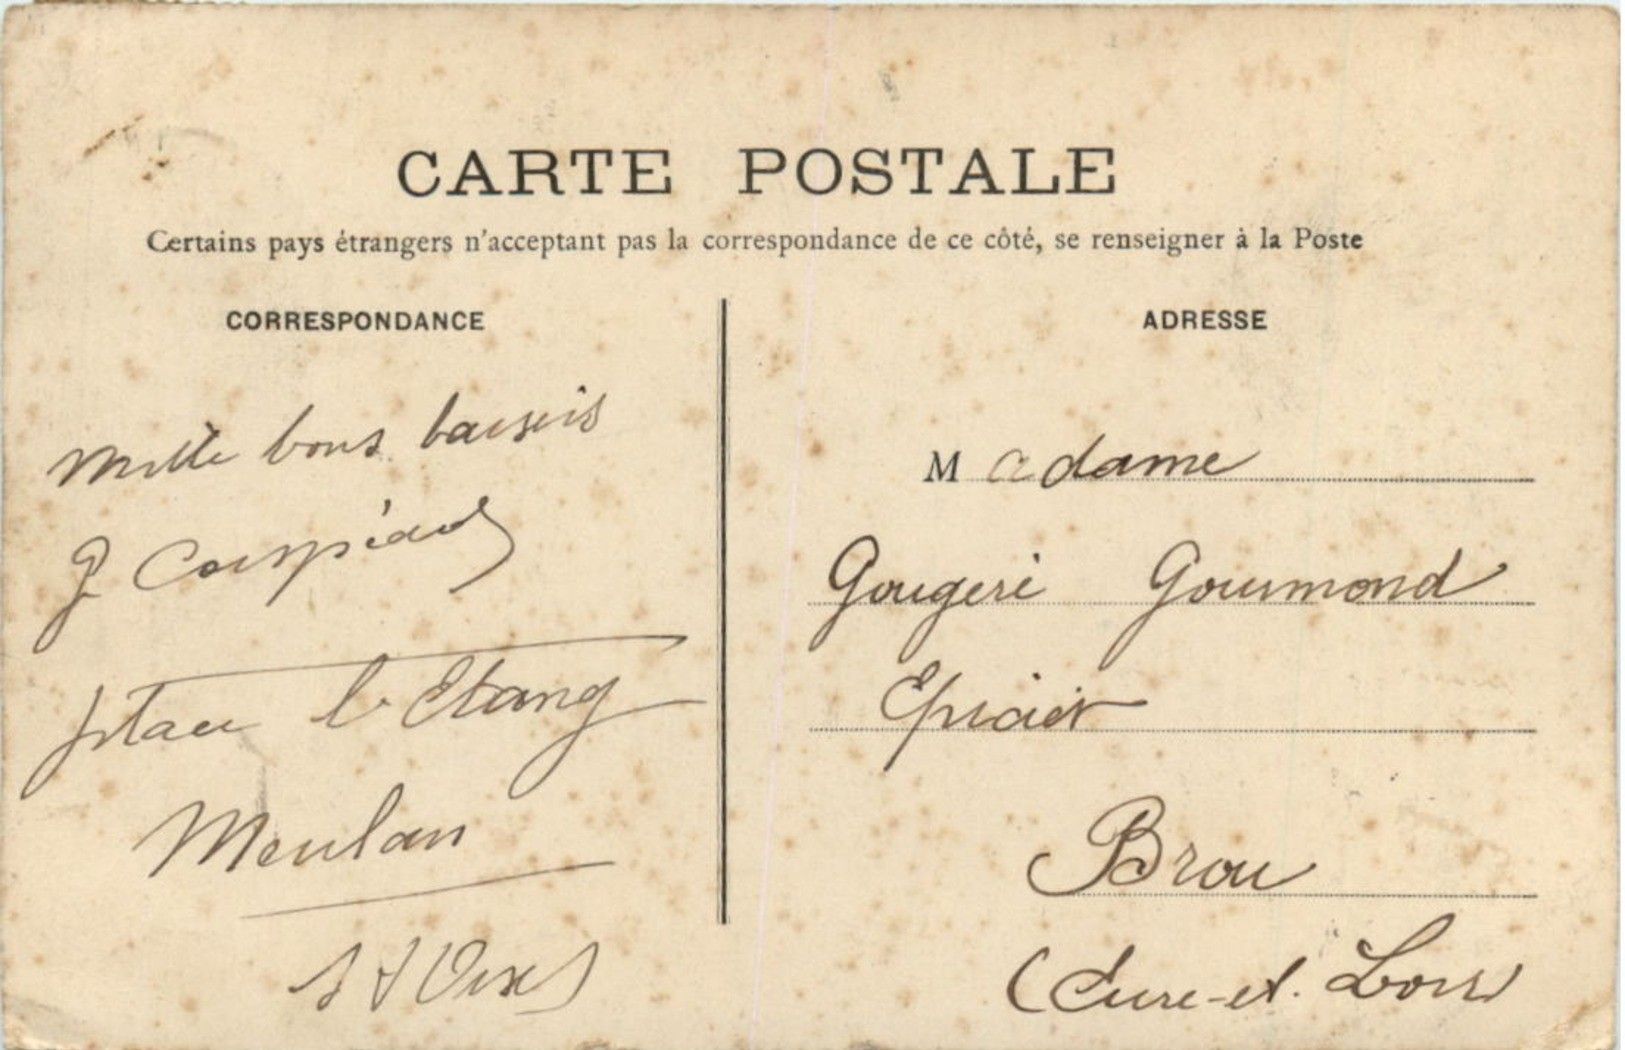 CARTE POSTALE
Certains pays étrangers n'acceptant pas la correspondance de ce côté, se renseigner à la Poste
CORRESPONDANCE
Mille bons baisers
place l'Etang
Meulan
S et Oise
ADRESSE
Madame
Gougeré Gourmond
Epicier
Brou
(Eure-et-Loir)